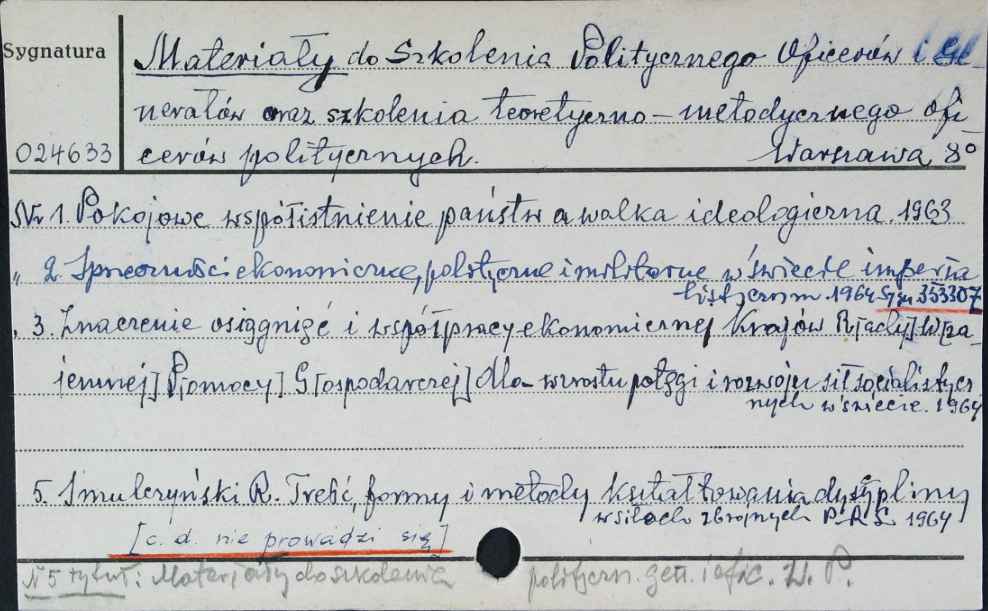 Sygnatura
Materiały do Szkolenia Politycznego Oficerów i Ge-
nerałów oraz szkolenia teoretyczno-metodycznego ofi-
024633 cerów politycznych. Warszawa 8°
Nr 1. Pokojowe współistnienie państw a walka ideologiczna. 1963
„ 2. Sprzeczności ekonomiczne, polityczne i militarne w świecie imperia
listycznym 1964 Syg. 353307
„ 3. Znaczenie osiągnięć i współpracy ekonomicznej Krajów R[ady] Wza-
jemnej] P[omocy] G[ospodarczej] dla wzrostu potęgi i rozwoju sił socjalistycz
nych w świecie. 1964
5. Smulczyński R. Treść, formy i metody kształtowania dyscypliny
w siłach zbrojnych P.R.L. 1964
[c. d. nie prowadzi się]
N 5 tytuł: Materjały do szkolenia polityczn. gen. i ofic. W. P.